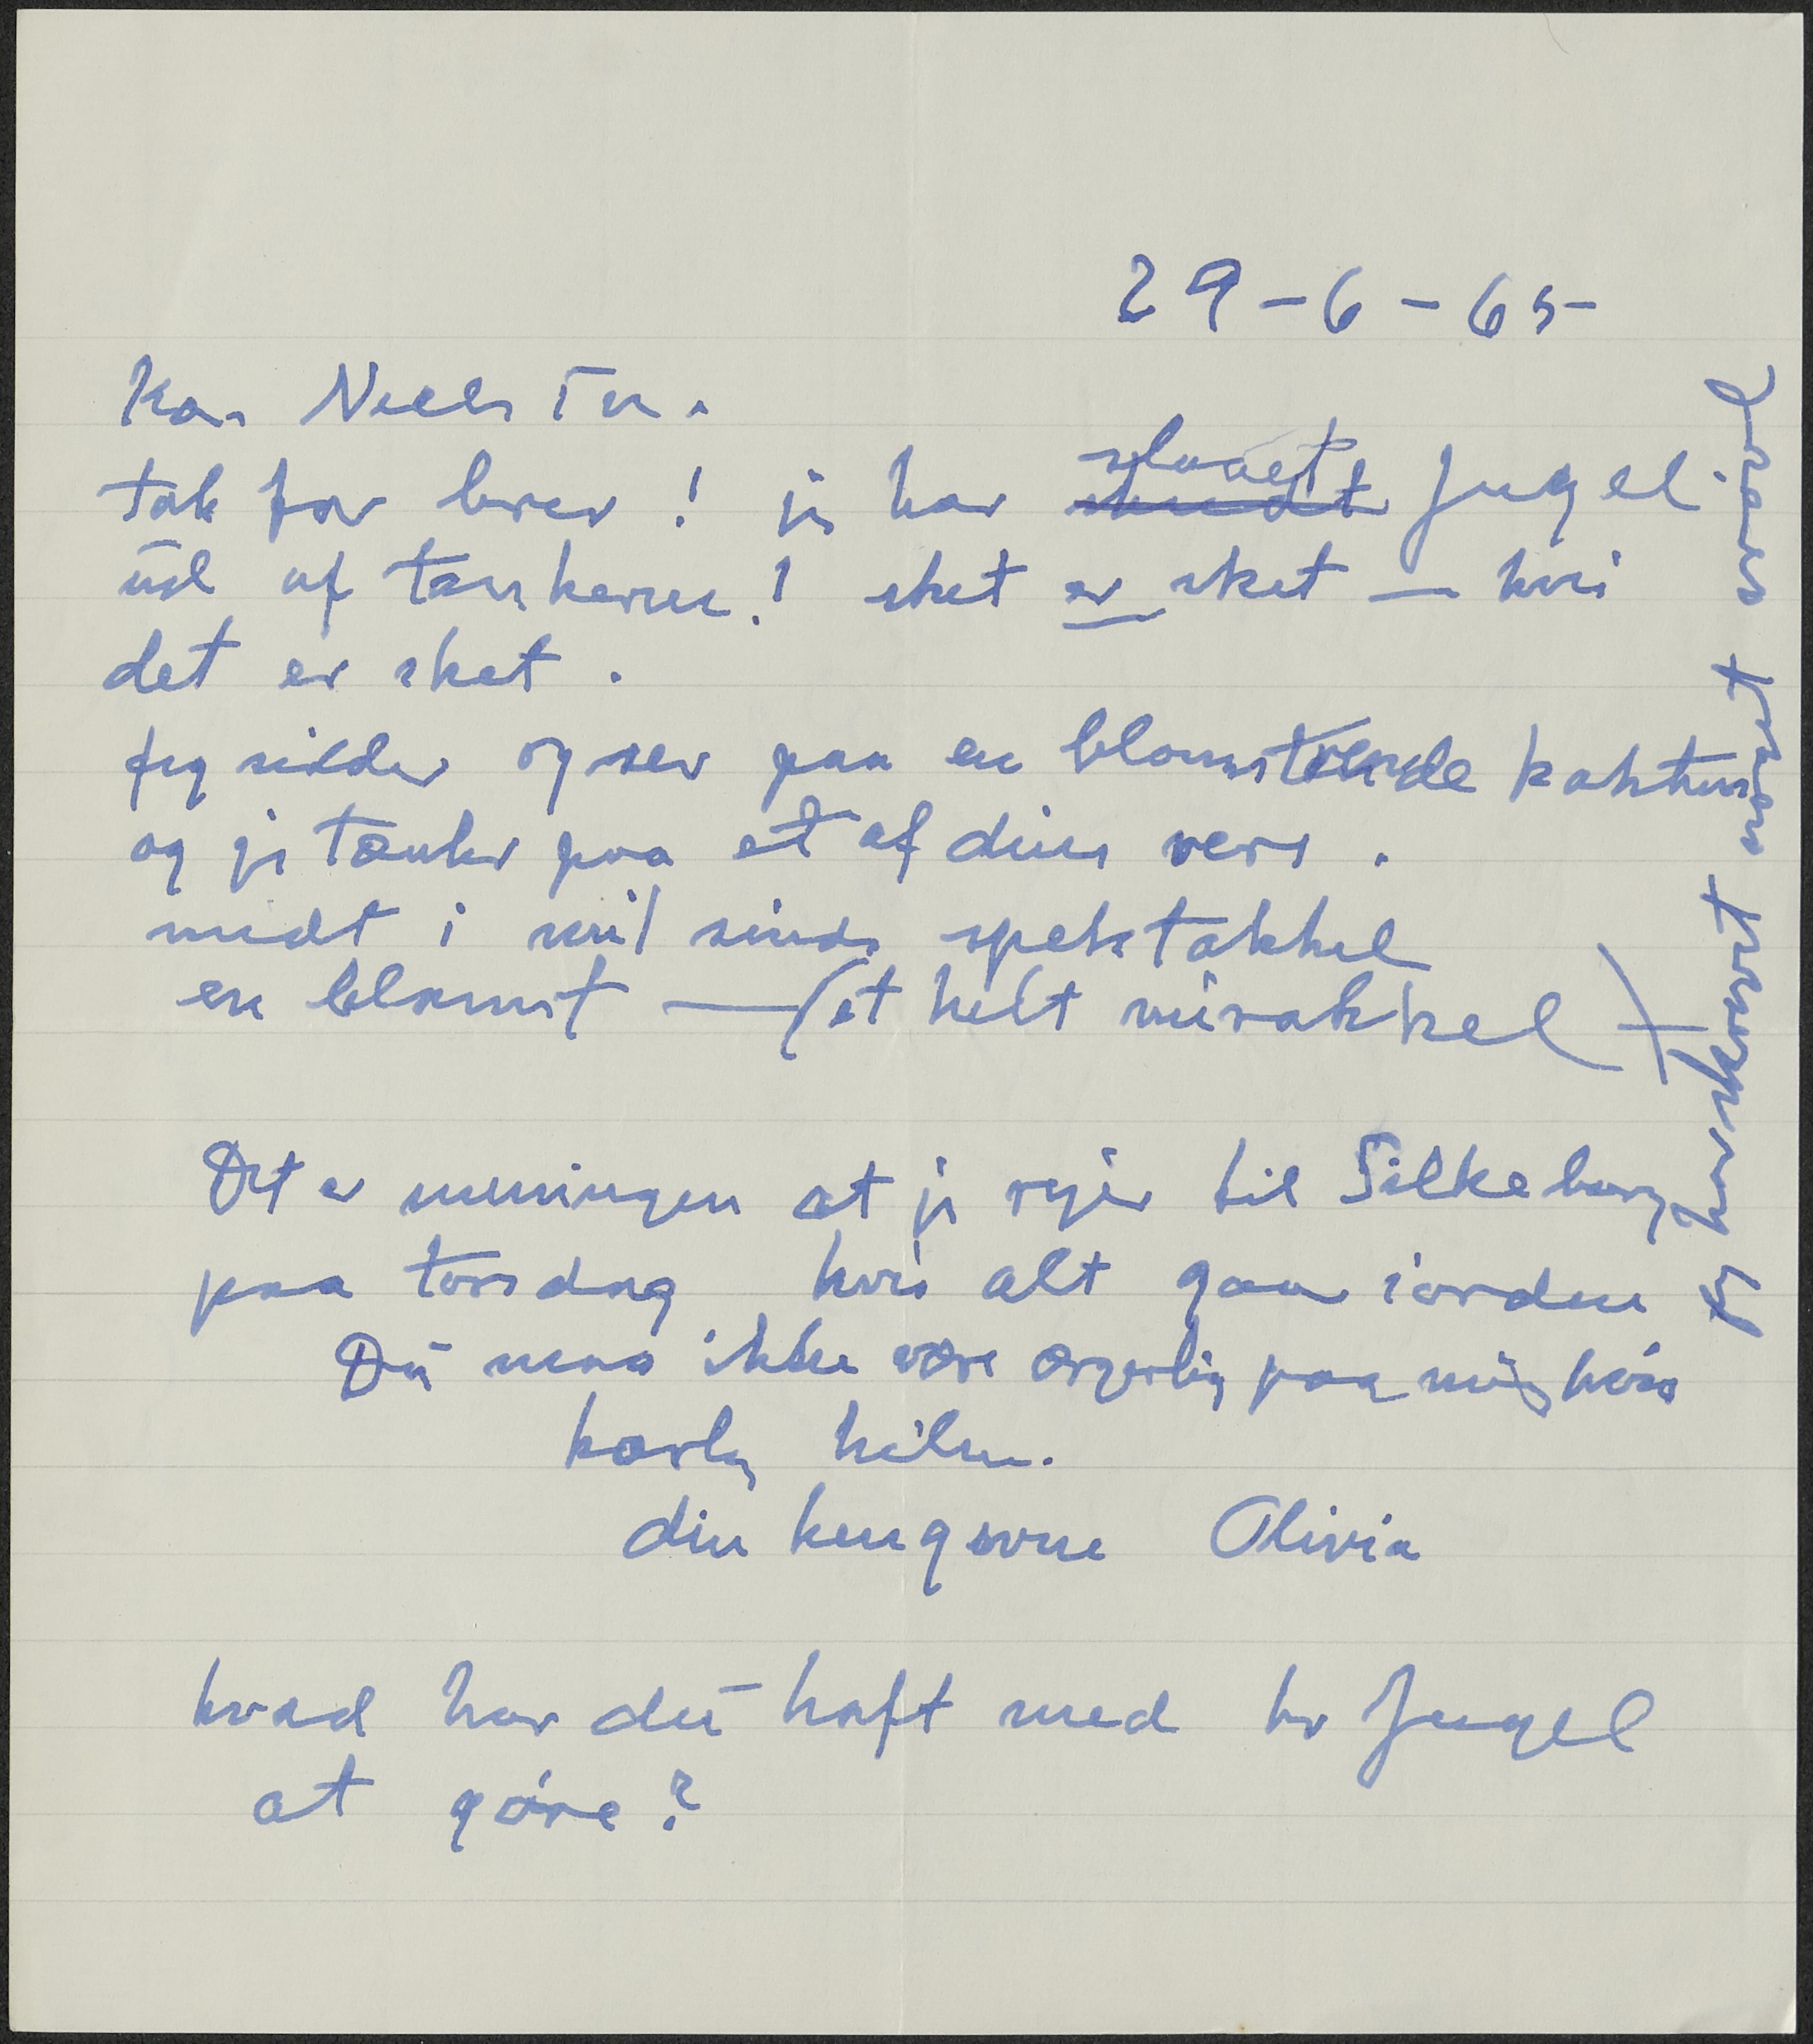 29-6-65
Kær Niels Ta.
tak for brev! jeg har slaaet Jugel
ud af tankerne! sket er sket — hvis
det er sket.
Jeg sidder og ser paa en blomstrende kaktus
og jeg tænker paa et af dine vers.
midt i mit sinds spektakkel
en blomst — (et helt mirakkel)
Det er meningen at jeg rejser til Silkeborg
paa torsdag hvis alt gaar iorden
Du maa ikke være ærgerlig paa mig hvis
kærlig hilsen.
din hengivne Olivia
hvad har du haft med hr Jugel
at gøre?
jeg har skrevet noget